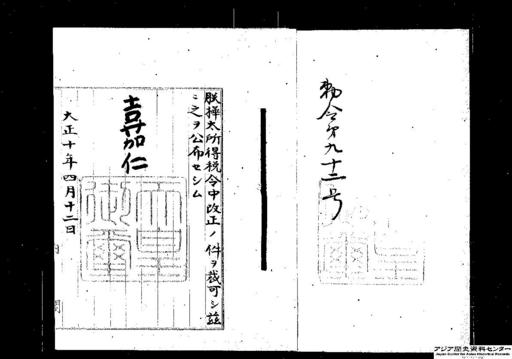 勅令第九十二号
朕樺太所得税令中改正ノ件ヲ裁可シ茲
ニ之ヲ公布セシム
嘉仁
天皇
御璽
大正十年四月十二日
アジア歴史資料センター
Japan Center for Asian Historical Records